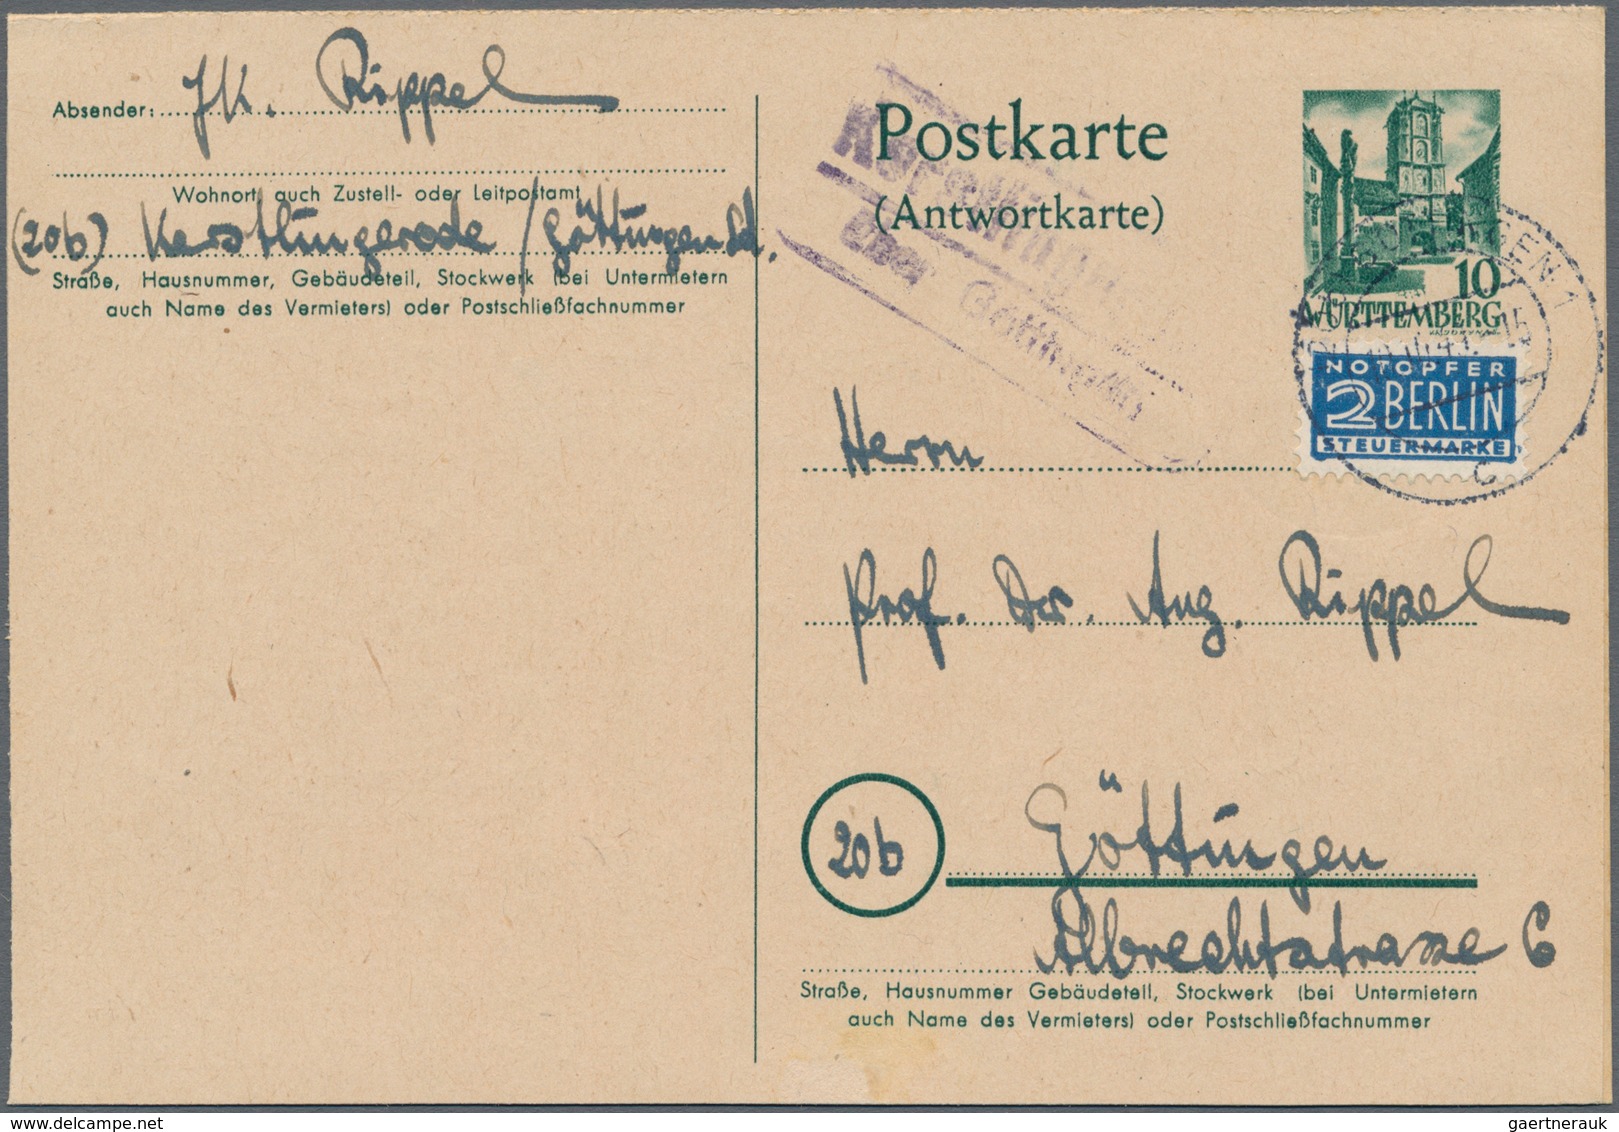 Absender: JK. Rippel
Wohnort, auch Zustell- oder Leitpostamt
(20b) Kerstlingerode / Göttingen Ld.
Straße, Hausnummer, Gebäudeteil, Stockwerk (bei Untermietern
auch Name des Vermieters) oder Postschließfachnummer
Postkarte
(Antwortkarte)
über Göttingen
10
WÜRTTEMBERG
NOTOPFER
2 BERLIN
STEUERMARKE
c
Herrn
Prof. Dr. Aug. Rippel
20b
Göttingen
Albrechtstrasse 6
Straße, Hausnummer Gebäudeteil, Stockwerk (bei Untermietern
auch Name des Vermieters) oder Postschließfachnummer
gaertnerauk